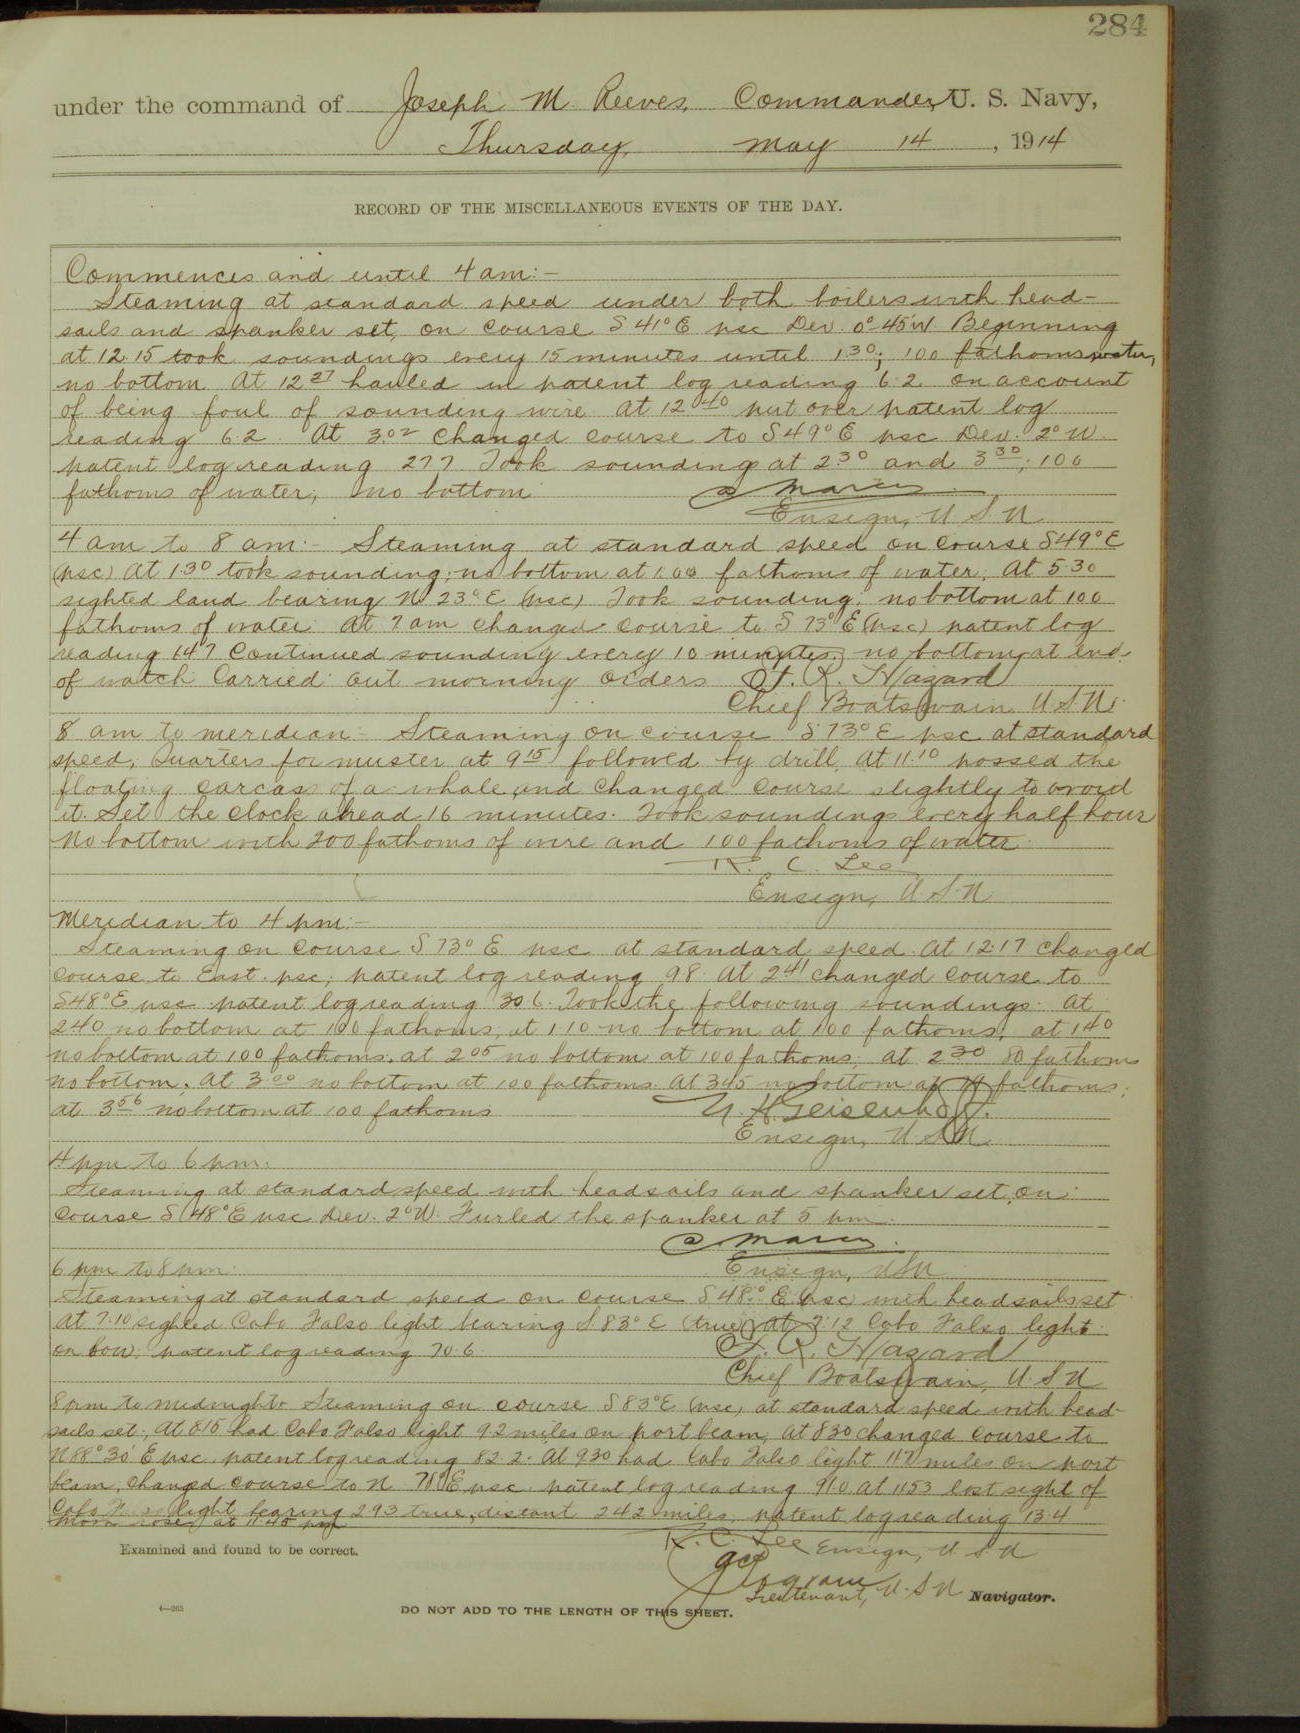 284
under the command of Joseph M. Reeves, Commander, U. S. Navy,
Thursday, May 14, 1914
RECORD OF THE MISCELLANEOUS EVENTS OF THE DAY.
Commences and until 4 am:-
Steaming at standard speed under both boilers with head-
sails and spanker set, on course S 41° E psc Dev. 0°-45'W Beginning
at 12.15 took soundings every 15 minutes until 130; 100 fathoms water,
no bottom At 12 27 hauled in patent log reading 6.2 on account
of being foul of sounding wire At 12 40 put over patent log
reading 6.2. At 3.02 changed course to S 49° E psc Dev. 2° W.
patent log reading 27.7 Took sounding at 2 30 and 3 30; 100
fathoms of water, no bottom
Ensign, U S N
4 am to 8 am:- Steaming at standard speed on course S 49° E
(psc) At 130 took sounding; no bottom at 100 fathoms of water. At 5 30
sighted land bearing N 23° E (psc) Took sounding. no bottom at 100
fathoms of water At 7 am changed course to S 73° E (psc) patent log
reading 14.7 Continued sounding every 10 minutes. no bottom at end
of watch Carried out morning orders R. Hazard
Chief Boatswain U.S.N.
8 am to meridian- Steaming on course S 73° E psc at standard
speed, Quarters for muster at 9 15 followed by drill. At 11.10 passed the
floating carcass of a whale and changed course slightly to avoid
it. Set the clock ahead 16 minutes. Took soundings every half hour
No bottom with 200 fathoms of wire and 100 fathoms of water
R. C. Lee
Ensign, U S N
Meridian to 4 pm:-
Steaming on course S 73° E psc at standard speed. At 12.17 changed
course to East psc; patent log reading 98. At 2 41 changed course to
S 48° E psc patent log reading 30.6. Took the following soundings: At
240 no bottom at 100 fathoms, at 1 10 no bottom at 100 fathoms; at 140
no bottom at 100 fathoms. at 2 05 no bottom at 100 fathoms; at 2 30 80 fathoms
no bottom. At 3 00 no bottom at 100 fathoms At 345 no bottom at fathoms;
at 3 56 no bottom at 100 fathoms Geisenhoff.
Ensign, U S N
4 pm to 6 pm:
Steaming at standard speed with headsails and spanker set, on
course S 48° E psc Dev. 2° W. Furled the spanker at 5 pm.
Ensign, USN
6 pm to 8 pm.
Steaming at standard speed on course S 48° E (psc) with headsails set
At 7.10 sighted Cabo Falso light bearing S 83° E (true) at 7.12 Cabo Falso light
on bow, patent log reading 70.6 R. Hazard
Chief Boatswain, U.S.N
8 pm to midnight Steaming on course S 83° E (psc) at standard speed with head-
sails set; At 815 had Cabo Falso light 9.2 miles on port beam, at 830 changed course to
N 88° 30' E psc patent log reading 82.2. At 930 had Cabo Falso light 11.7 miles on port
beam, changed course to N E psc patent log reading 91.0 At 1153 lost sight of
Cabo Falso light bearing 293 true, distant 24.2 miles, patent log reading 13.4
Moon rose at 11.45 pm
R. C. Lee Ensign, U S N
Examined and found to be correct.
Lieutenant, U.S.N Navigator.
4-265
DO NOT ADD TO THE LENGTH OF THIS SHEET.